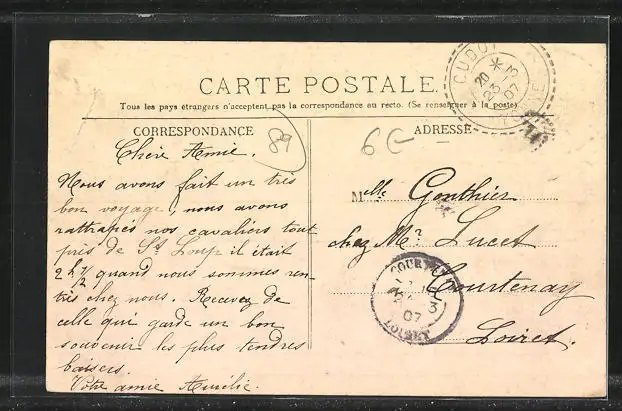 CARTE POSTALE.
Tous les pays étrangers n'acceptent pas la correspondance au recto. (Se renseigner à la poste)
CORRESPONDANCE
Chère Amie.
Nous avons fait un très
bon voyage, nous avons
rattrapés nos cavaliers tout
près de St Loup il était
2h 1/2 quand nous sommes ren-
trés chez nous. Recevez de
celle qui garde un bon
souvenir les plus tendres
baisers.
Votre amie Aurélie.
89
6€
ADRESSE
Melle Gonthier
chez Mr Lucet
Courtenay
Loiret.
CUDOT
20
23
07
YONNE
COURTENAY
3
07
LOIRET